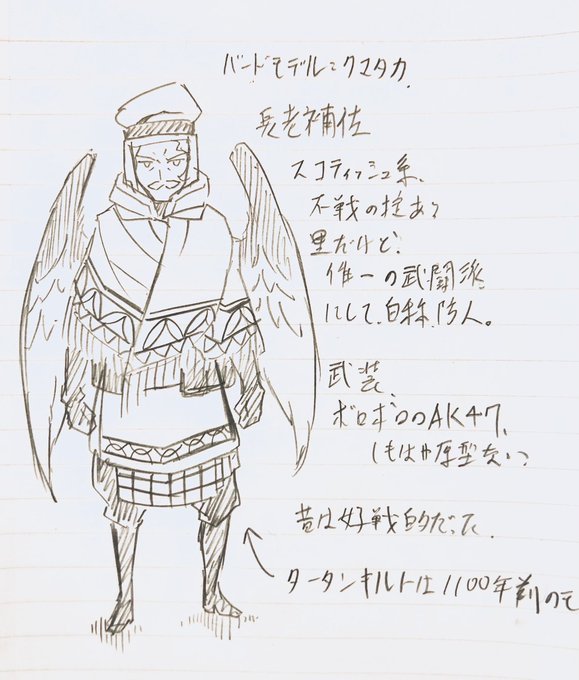 バードモデル:クマタカ
長老補佐
スコティッシュ系、
不戦の掟ある
里だけど、
唯一の武闘派
にして、自称、防人。
武装、
ボロボロのAK47、
(もはや原型ない)
昔は好戦的だった。
タータンキルトは1100年前のモ